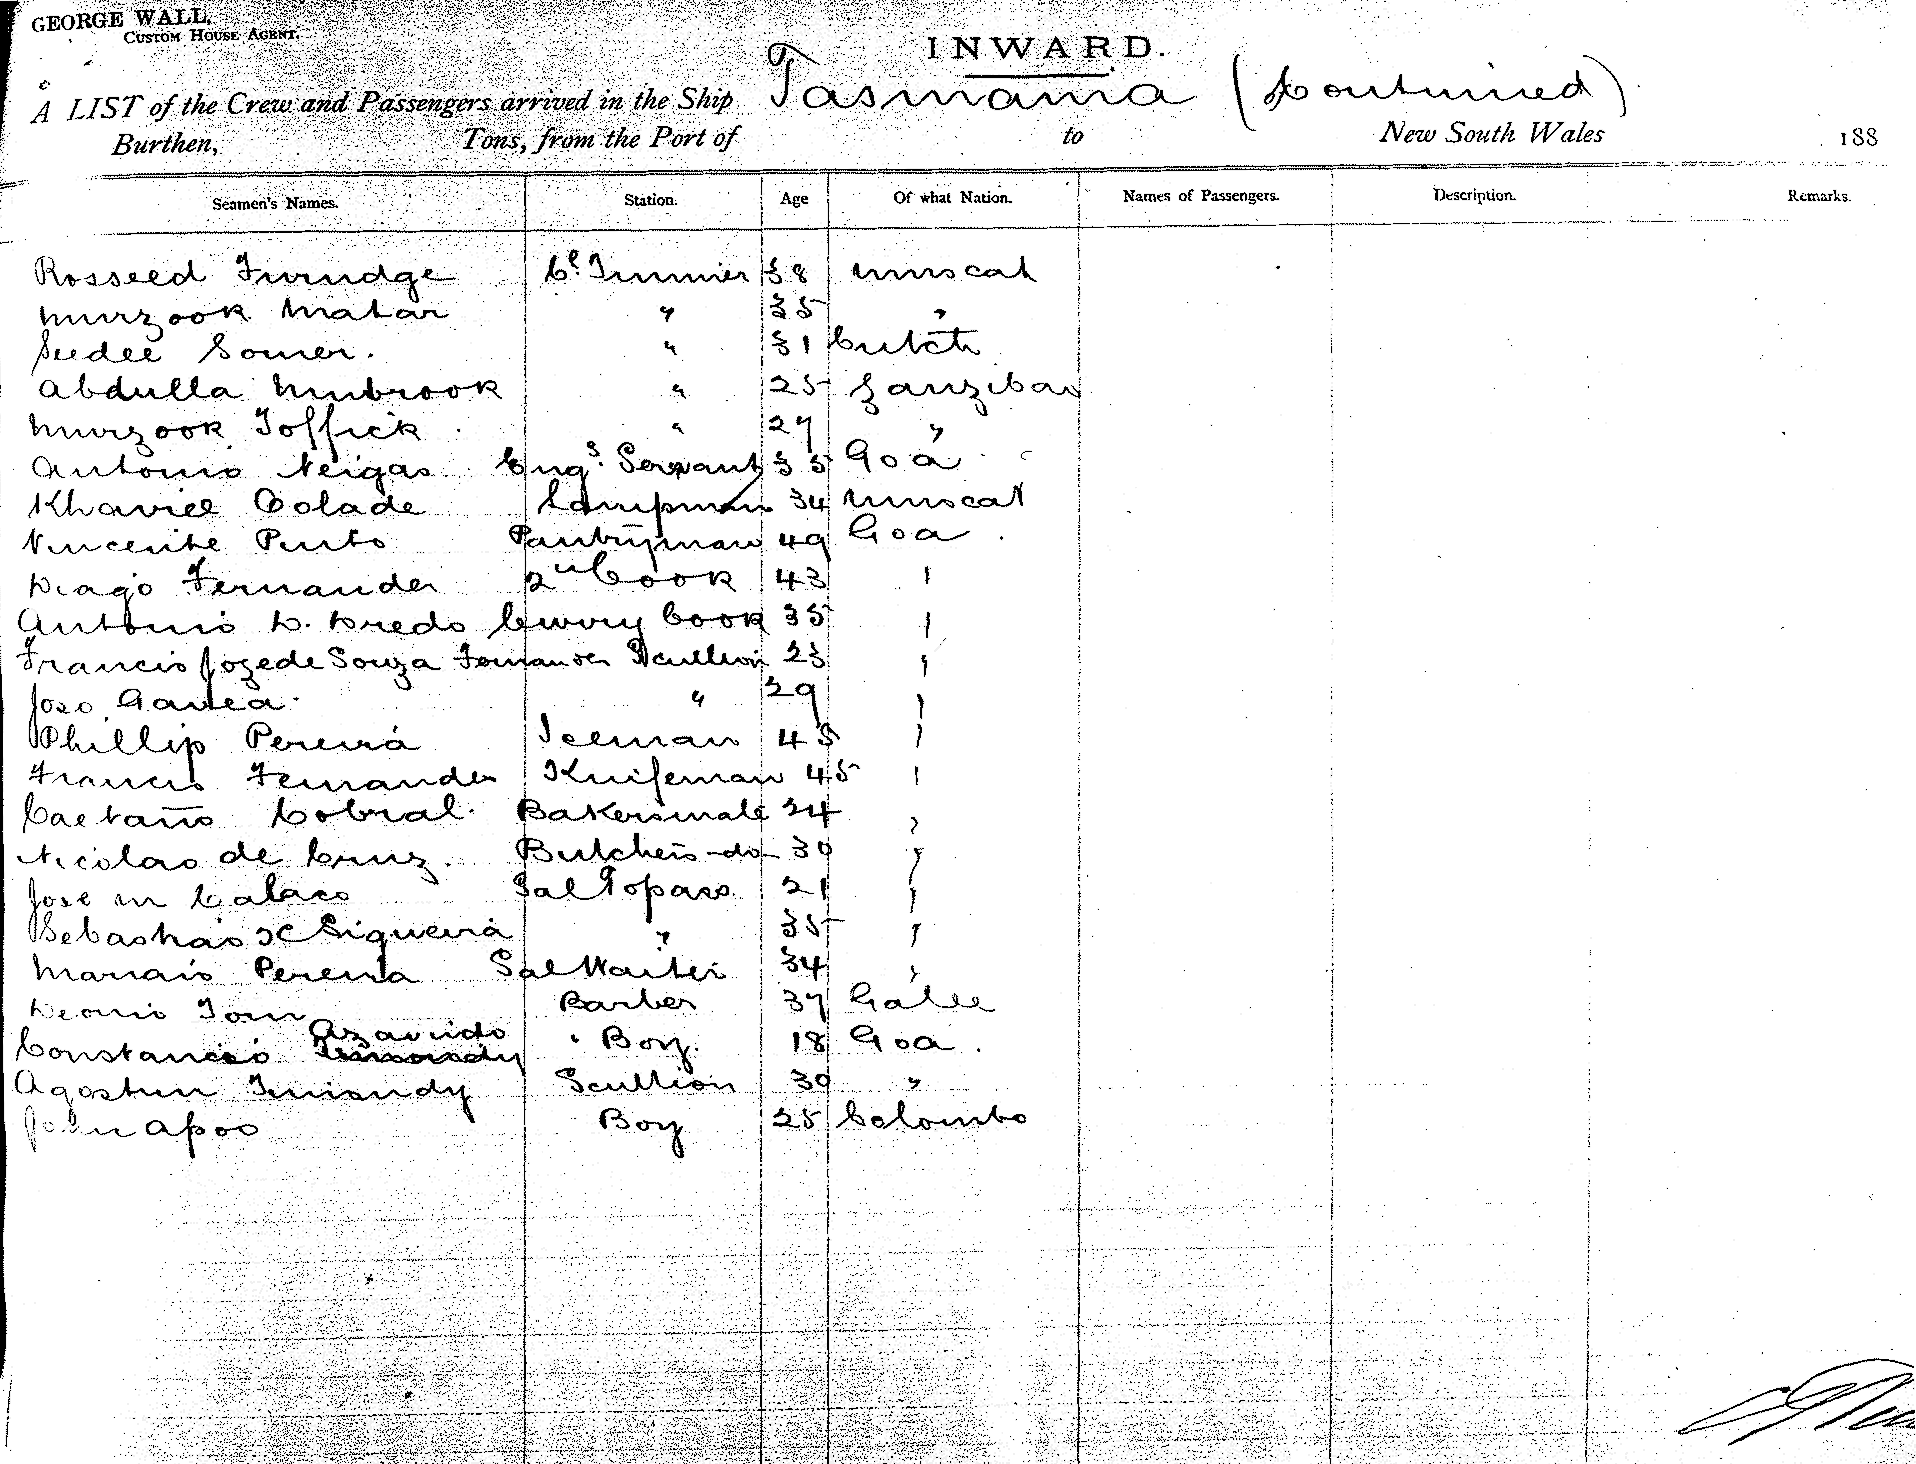 GEORGE WALL,
CUSTOM HOUSE AGENT.
INWARD.
A LIST of the Crew and Passengers arrived in the Ship Tasmania (Continued)
Burthen, Tons, from the Port of to New South Wales 188
Seamen's Names. Station. Age Of what Nation. Names of Passengers. Description. Remarks.
Rosseed Furudge Cl Trimmer 38 Muscat
Murzook Matar " 35 "
Seedee Somer. " 31 Cutch
Abdulla Mubrook " 25 Zanzibar
Murzook Toffick " 27 "
Antonio Neigas Engs. Servant 35 Goa
Khaviel Colade Lampman 34 Muscat
Vincente Pinto Pantryman 49 Goa
Diago Fernander 2n Cook 43 "
Antonio D. Dredo Curry Cook 35 "
Francis Joze de Souza Fernander Scullion 23 "
Joso Gavea " 29 "
Phillip Pereira Iceman 45 "
Francis Fernander Knifeman 45 "
Caetano Cobral Bakersmate 24 "
Nicolao de Cruz. Butchers -do- 30 "
Jose M Calaco Sal Topass 21 "
Sebastiao X Siqueira " 35 "
Manais Pereira Sal Waiter 34 "
Deonis Tom Barber 37 Galle
Constancio Azavido Boy. 18 Goa.
Agostin Scullion 30 "
John Apoo Boy 25 Colombo